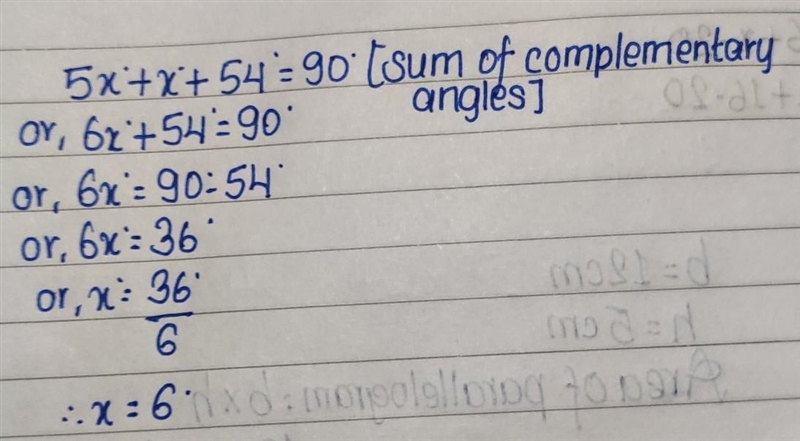 5x°+x°+54°=90° [sum of complementary
angles]
or, 6x°+54°=90°
or, 6x°=90°-54°
or, 6x°=36°
or, x°=36°/6
∴x=6°
b=12cm
h=5cm
Area of parallelogram=b×h